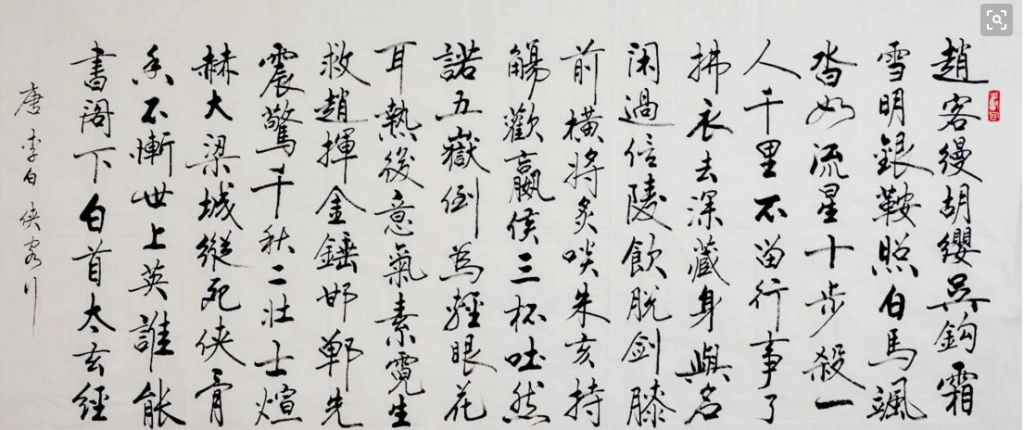 趙客縵胡纓吳鈎霜
雪明銀鞍照白馬颯
沓如流星十步殺一
人千里不留行事了
拂衣去深藏身與名
闲過信陵飲脫劍膝
前橫將炙啖朱亥持
觴歡嬴侯三杯吐然
諾五嶽倒為輕眼花
耳熱後意氣素霓生
救趙揮金錘邯鄲先
震驚千秋二壯士煊
赫大梁城縱死俠骨
香不慚世上英誰能
書閣下白首太玄經
唐李白俠客行